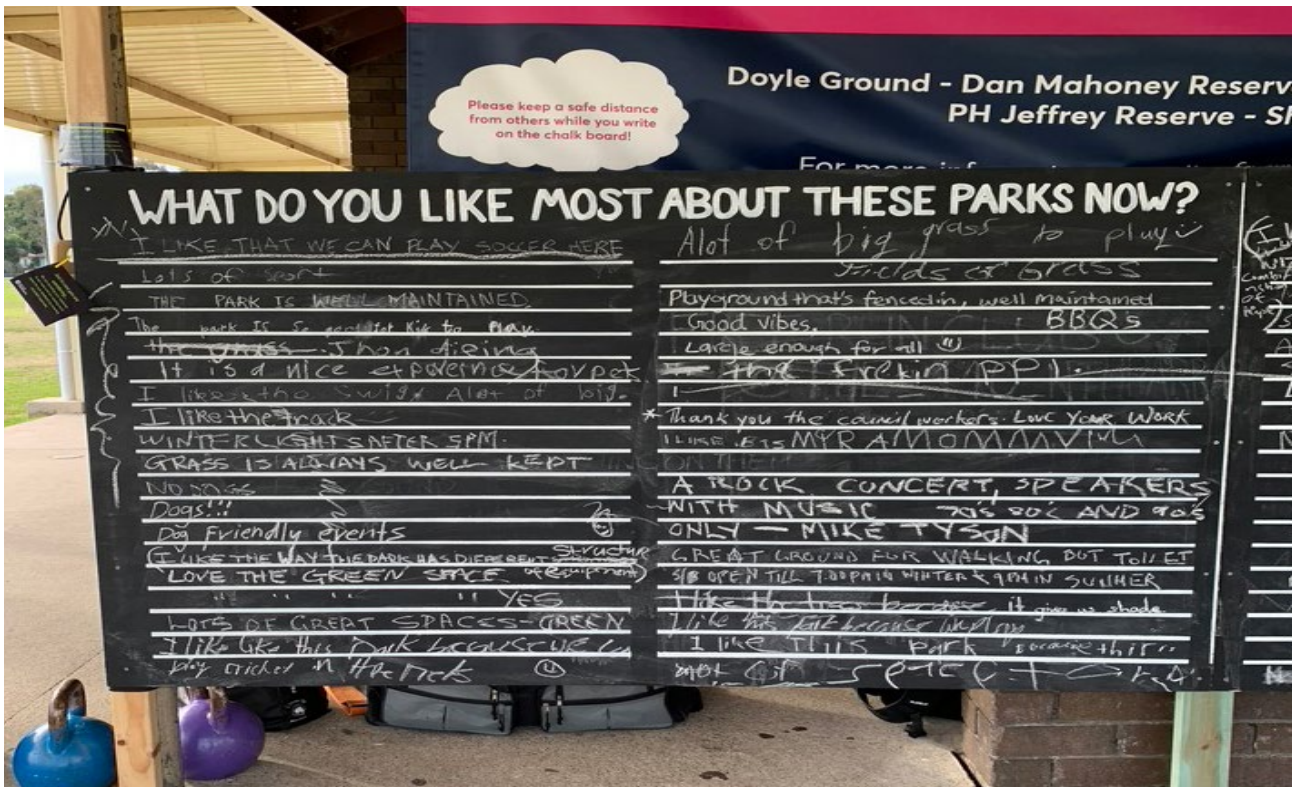 Please keep a safe distance
from others while you write
on the chalk board!
Doyle Ground - Dan Mahoney Reserv
PH Jeffrey Reserve - Sh
For more
WHAT DO YOU LIKE MOST ABOUT THESE PARKS NOW?
I LIKE THAT WE CAN PLAY SOCCER HERE
Lots of Sport
THE PARK IS WELL MAINTAINED.
The park IS So to PLAY.
the Grass
It is a nice
I like the Alot of big.
I like the track
WINTER LIGHTS AFTER 5PM.
GRASS IS ALWAYS WELL KEPT
NO DOGS
Dogs!!!
Dog Friendly events
I LIKE THE WAY THE PARK HAS DIFFERENT Structur
of equipment)
LOVE THE GREEN SPACE
" " " " YES
LOTS OF GREAT SPACES-GREEN
I like this Park because we
Play cricket in
Alot of big grass to play
Fields of Grass
Playground that's fenced in, well maintained
Good vibes. BBQs
Large enough for all
the
I
* Thank you the council workers. LOVE YOUR WORK
I LIKE
A ROCK CONCERT, SPEAKERS
WITH MUSIC 70's 80's AND 90s
ONLY - MIKE TYSON
GREAT GROUND FOR WALKING BUT TOILET
S/B OPEN TILL 7:00PM IN WINTER & 9PM IN SUMMER
I like the trees because it give us shade
I like this Park because
I like This Park because